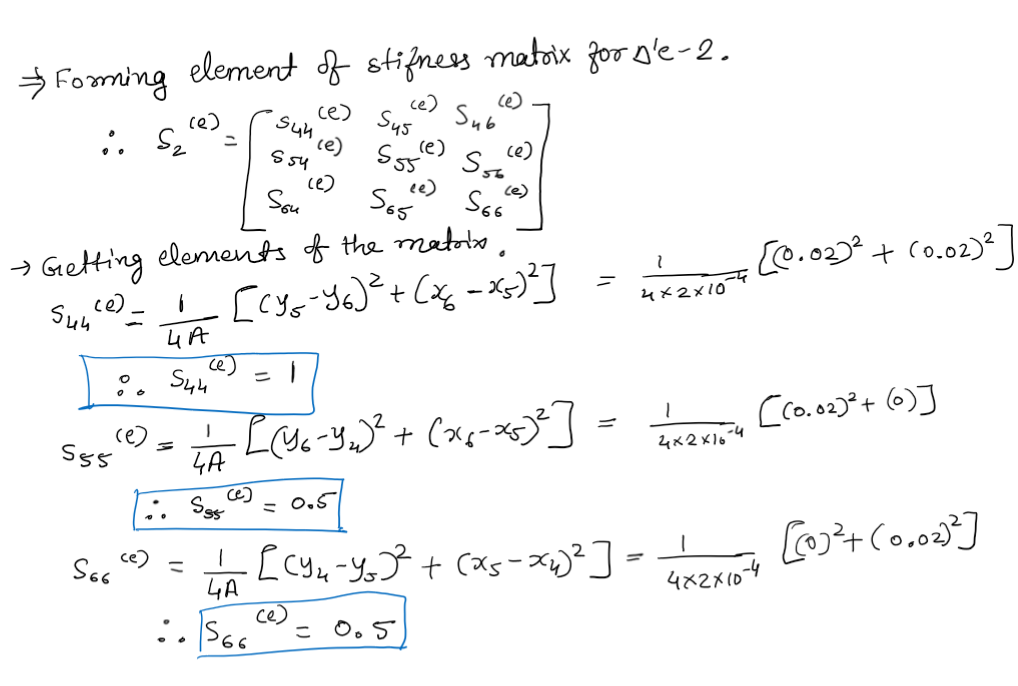 ⇒ Forming element of stifness matrix for Δ'e-2.
∴ S₂⁽ᵉ⁾ = [ S₄₄⁽ᵉ⁾ S₄₅⁽ᵉ⁾ S₄₆⁽ᵉ⁾
S₅₄⁽ᵉ⁾ S₅₅⁽ᵉ⁾ S₅₆⁽ᵉ⁾
S₆₄⁽ᵉ⁾ S₆₅⁽ᵉ⁾ S₆₆⁽ᵉ⁾ ]
→ Getting elements of the matrix.
S₄₄⁽ᵉ⁾ = 1/4A [(y₅-y₆)² + (x₆-x₅)²] = 1/4×2×10⁻⁴ [(0.02)² + (0.02)²]
∴ S₄₄⁽ᵉ⁾ = 1
S₅₅⁽ᵉ⁾ = 1/4A [(y₆-y₄)² + (x₆-x₅)²] = 1/4×2×10⁻⁴ [(0.02)² + (0)]
∴ S₅₅⁽ᵉ⁾ = 0.5
S₆₆⁽ᵉ⁾ = 1/4A [(y₄-y₅)² + (x₅-x₄)²] = 1/4×2×10⁻⁴ [(0)² + (0.02)²]
∴ S₆₆⁽ᵉ⁾ = 0.5